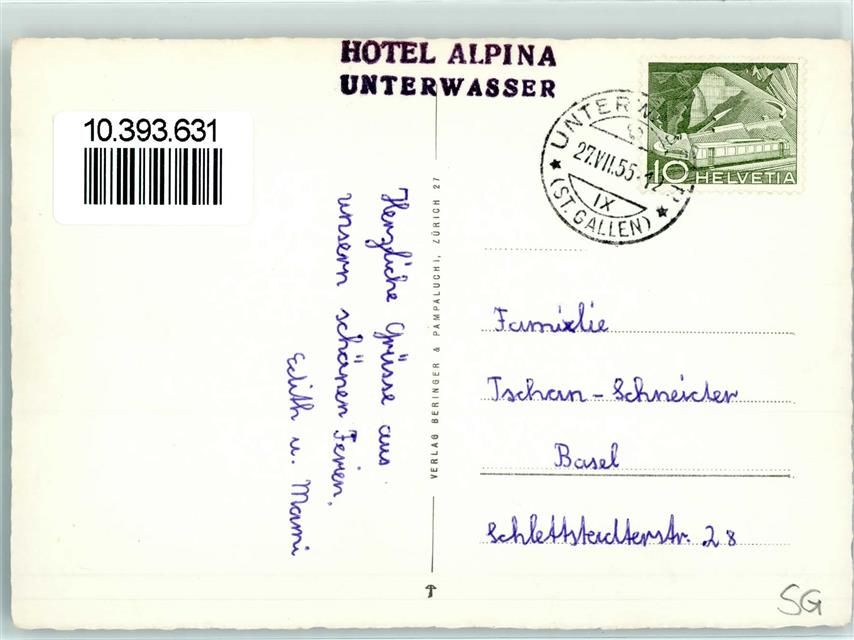 HOTEL ALPINA
UNTERWASSER
10.393.631
UNTERWASSER
27.VII.55-12
IX
(ST. GALLEN)
10 HELVETIA
Herzliche Grüsse aus
unsern schönen Ferien.
Edith u. Mami
VERLAG BERINGER & PAMPALUCHI, ZÜRICH 27
Familie
Tschan-Schneider
Basel
Schlettstadterstr. 28
SG